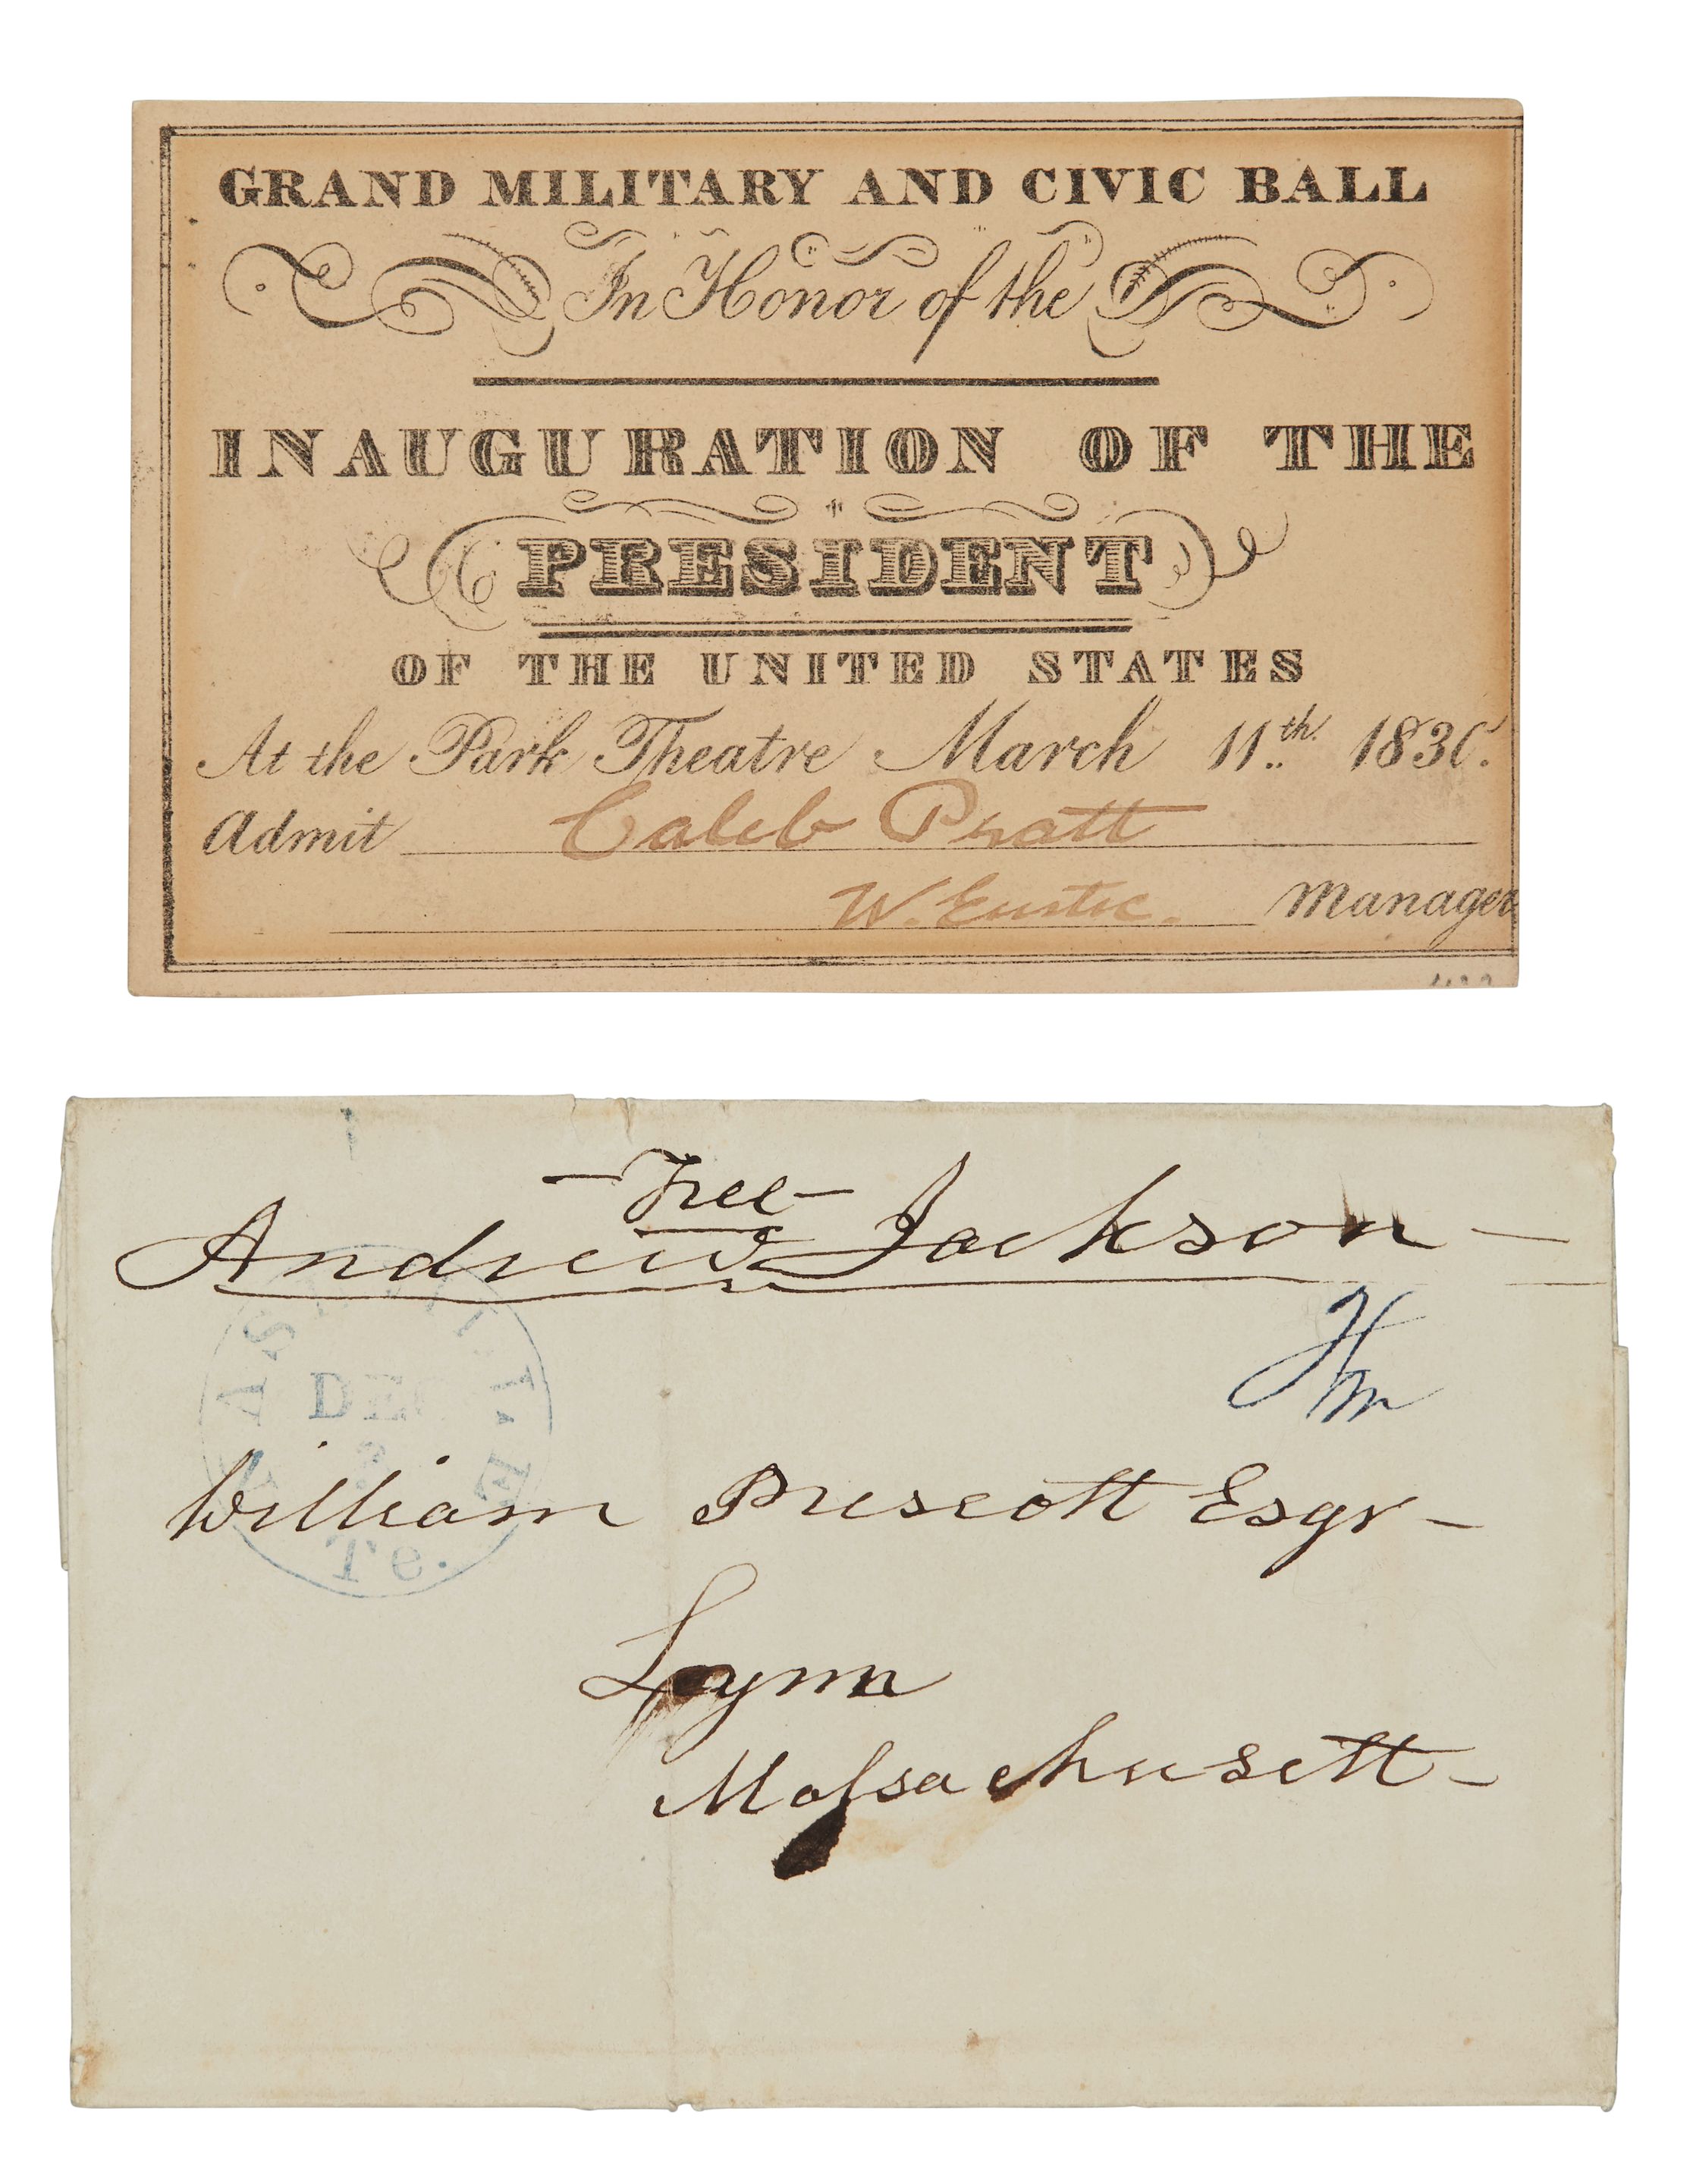 GRAND MILITARY AND CIVIC BALL
In Honor of the
INAUGURATION OF THE
PRESIDENT
OF THE UNITED STATES
At the Park Theatre March 11th. 1830.
Admit Caleb Pratt
W. Eustic. Manager
- Free -
Andrew Jackson -
Hm
NASHVILLE
DEC
Te.
William Prescott Esqr -
Lynn
Massachusett -